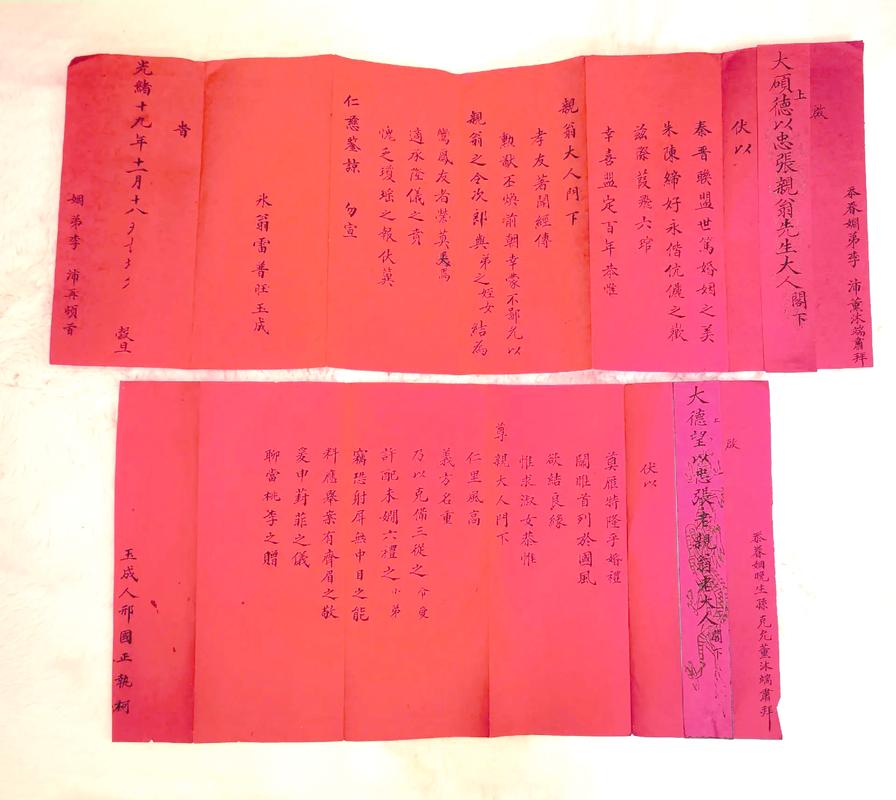 忝眷姻弟李 沛薰沐端肅拜
啟
上
大碩德以忠張親翁先生大人閣下
伏以
秦晉聯盟世篤婚姻之美
朱陳締好永偕伉儷之歡
茲際葭飛六琯
幸喜盟定百年恭惟
親翁大人門下
孝友著聞經傳
勳猷丕煥前朝幸蒙不鄙允以
親翁之令次郎與弟之姪女結為
鸞鳳友者榮莫
焉
適承隆儀之賁
愧乏瓊瑤之報伏冀
仁慈鑒諒 勿宣
冰翁雷普旺玉成
旹
光緒十九年十一月十八
穀旦
姻弟李 沛再頓首
忝眷姻晚生孫克允薰沐端肅拜
啟
上
大德望以忠張老親翁老大人閣下
伏以
奠雁特隆乎婚禮
關雎首列於國風
欲結良緣
惟求淑女恭惟
尊親大人門下
仁里風高
義方名重
乃以克備三從之令愛
許配未嫻六禮之小弟
竊恐射屏無中目之能
料應舉案有齊眉之敬
爰申葑菲之儀
聊當桃李之贈
玉成人邢國正執柯